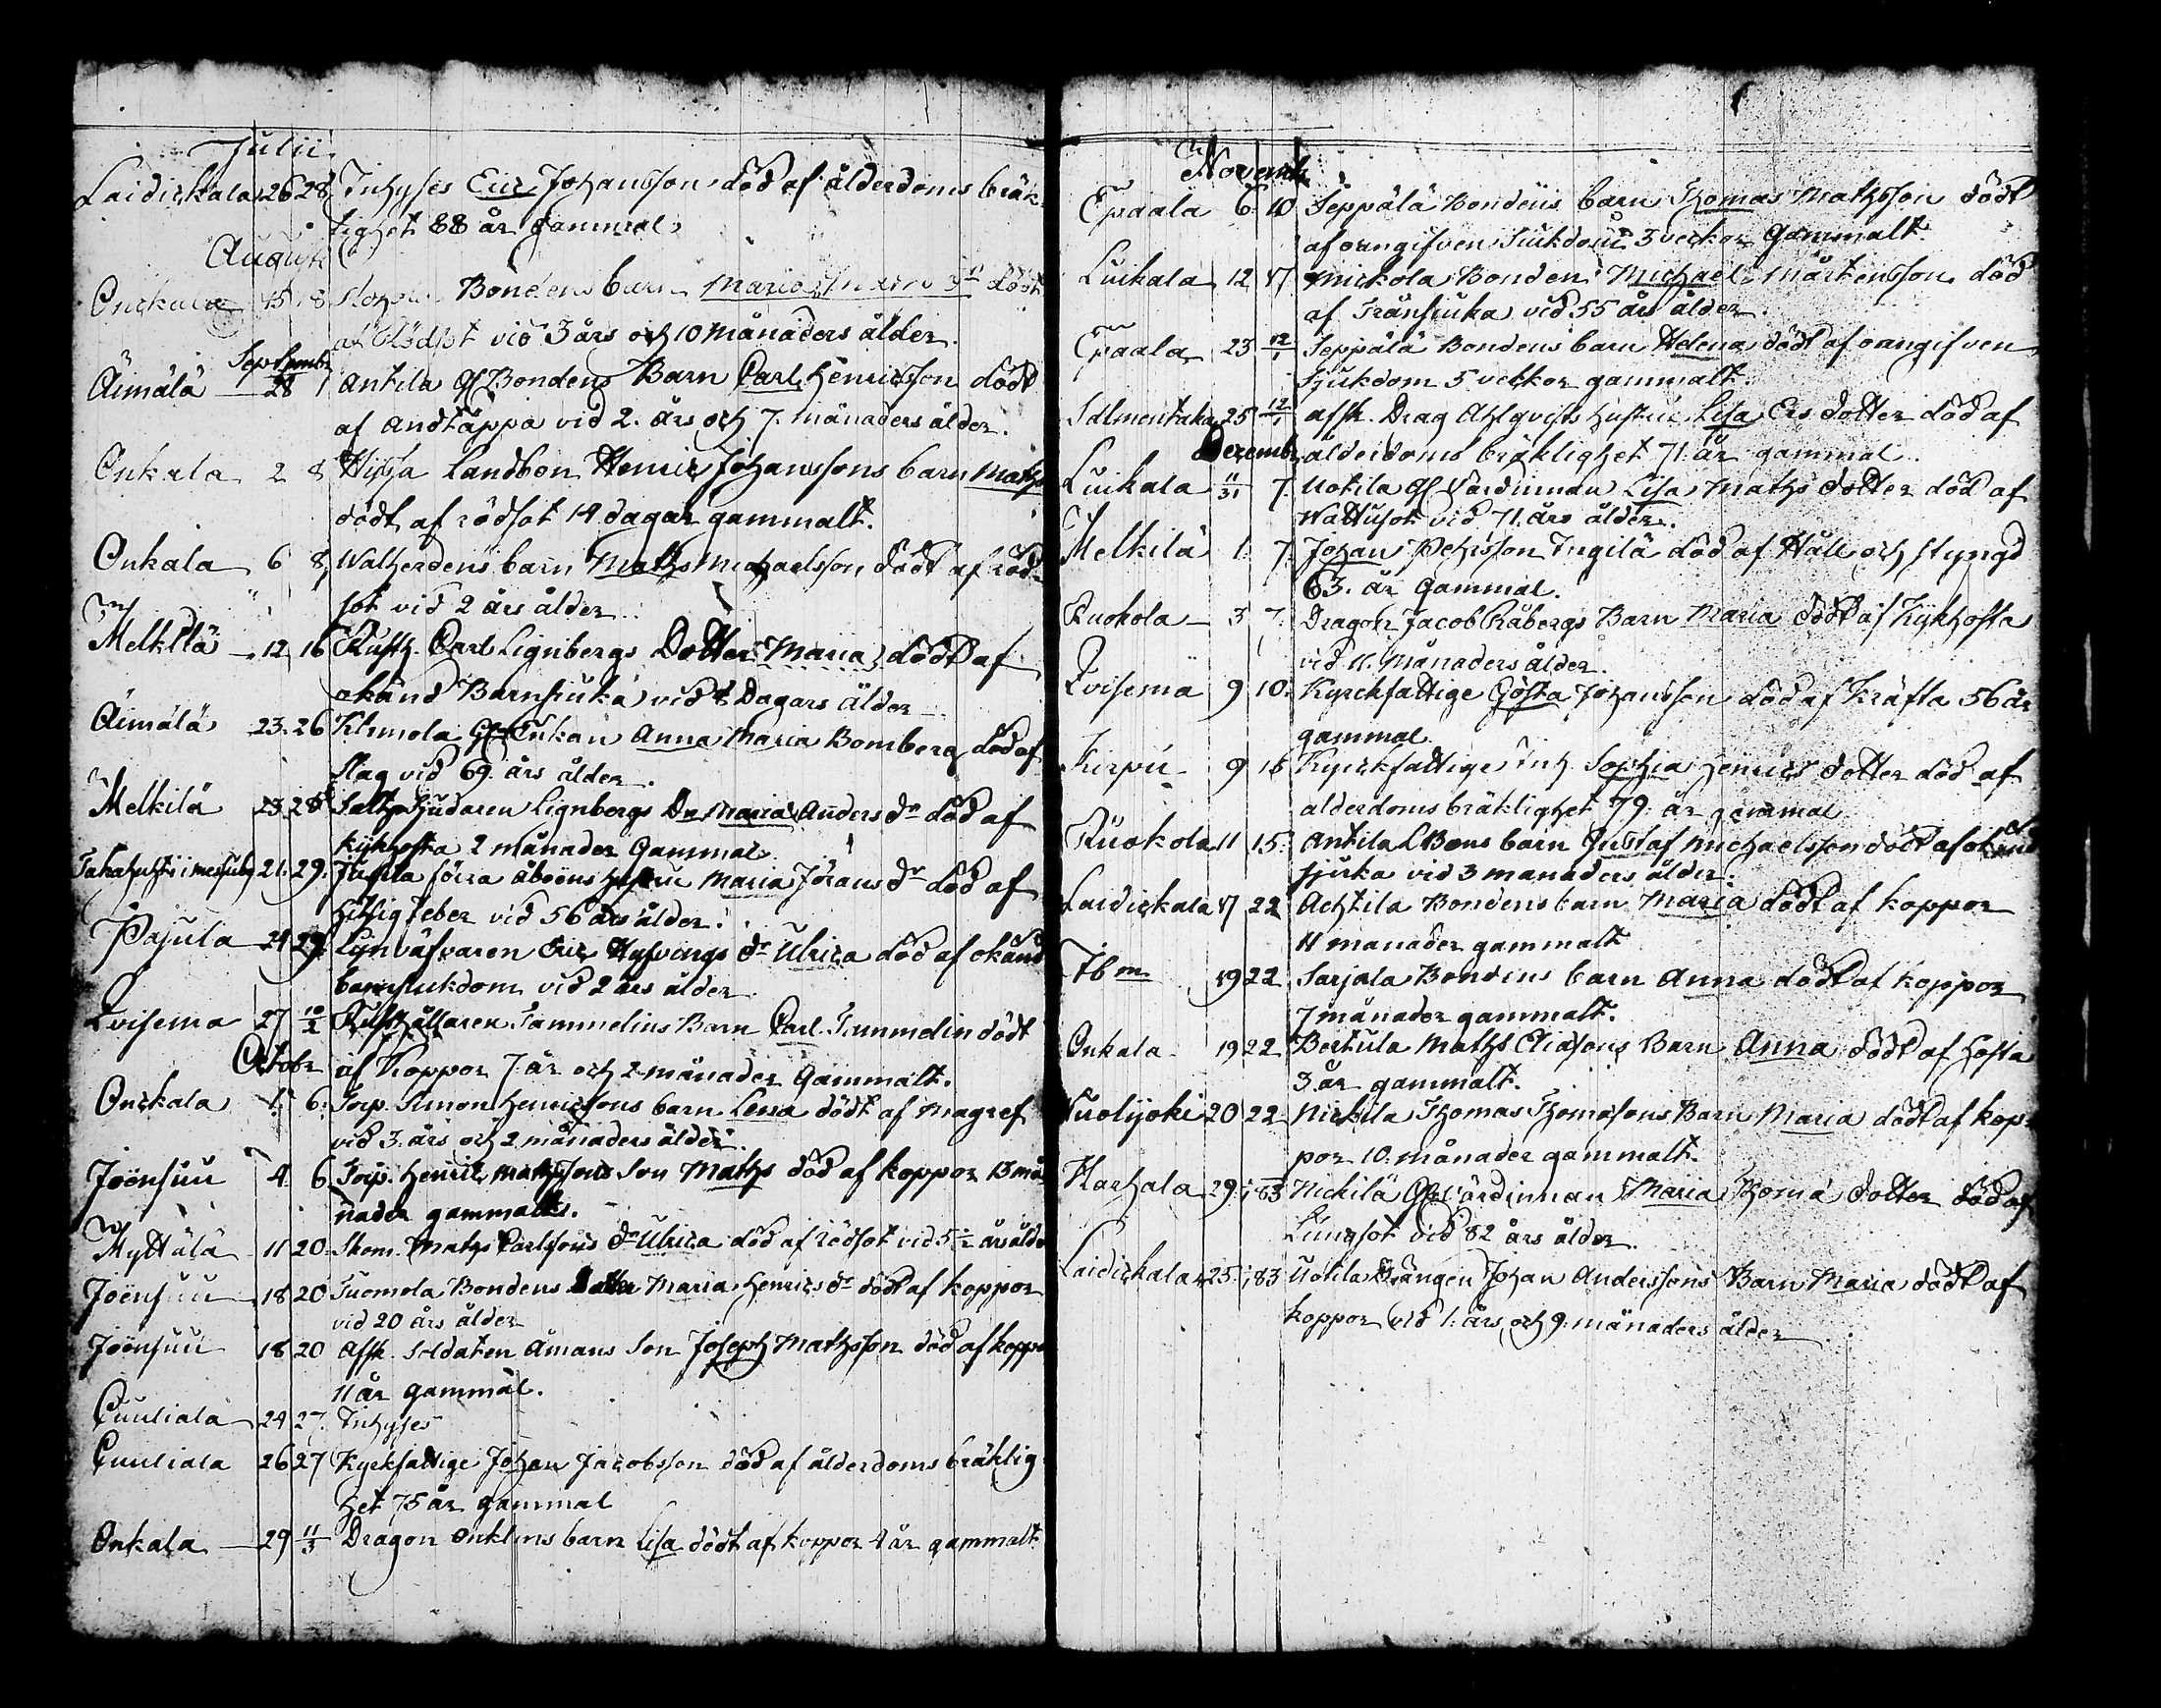 Julii
Laidickala 26 28 Inhyses Eric Johansson död af ålderdoms bräk-
lighet 88 år gammal
August
Onckala 15 18 Bondens barn Maria dödt
af Rödsot vid 3 års och 10 Månaders ålder.
Septembr
Äimälä 28 1 Antila Gl Bondens Barn Carl Henricsson dödt
af Andtäppa vid 2. års och 7. månaders ålder.
Onkala 2 8 Hissa Landbon Henric Johanssons barn Maths
dödt af rödsot 14 dagar gammalt.
Onkala 6 8 barn Maths Michaelsson dödt af röd-
sot vid 2 års ålder.
Melkilä 12 16 Rusth. Carl Lignbergs Dotter Maria, död af
okänd Barnsiuka vid 8 Dagars Ålder
Äimälä 23. 26 Klemola Gl Enkan Anna Maria Bomberg död af
slag vid 69. års ålder.
Melkilä 23 28 Lignbergs Dr Maria Anders dr död af
kikhosta 2 månader Gammal
21. 29. förra åboens hustru Maria Jörans dr död af
hitsig feber vid 56 års ålder.
Pajula 24 29 Linväfvaren Eric dr Ulrica död af okänd
barnsiukdom vid 2 års ålder
Kvisema 27 10/2 Rusthållaren Tammelins Barn Carl Tammelin dödt
Octobr af Koppor 7. år och 2 månader Gammalt.
Onckala 1. 6. Torp. Simon Henricsons barn Lena dödt af Magref
vid 3. års och 2 månaders ålder.
Joënsuu 4. 6. Torp. Henric Mathssons Son Maths död af koppor 13 må-
nader gammalt.
Myttälä 11 20 Thom. Maths Carlssons dr Ulrica död af rödsot vid 5 1/2 års ålde
Joënsuu 18 20 Tuomola Bondens Dotter Maria Henrics dr död af koppor
vid 20 års ålder
Joënsuu 18 20 Afsk. soldaten Åmans Son Joseph Mathsson död af koppo
11 år gammal.
Cuuliala 24 27. Inhyses
Cuuliala 26 27 Kyrkfattige Johan Jacobsson död af ålderdoms bräklig
het 75 år gammal
Onkala 29 11/3 Dragon Onklins barn Lisa dödt af koppor 4 år gammalt
Novemb
Epaala 6. 10 Seppälä Bondens barn Thomas Mathsson dödt
af oangifven siukdom 3 veckor Gammalt.
Luikala 12 17 Mickola Bonden Michael Mårtensson död
af Trånsiuka vid 55 års ålder
Epaala 23 12/1 Seppälä Bondens barn Helena dödt af oangifven
sjukdom 5 veckor gammalt.
Salmentaka 25 12/1 afsk. Drag Ahlqvists hustru Lisa Ers dotter död af
Decembr ålderdoms bräklighet 71. år gammal.
Luikala 11/31 7. Uotila Gl Värdinnan Lisa Maths dotter död af
Wattusot vid 71. års ålder.
Melkilä 1. 7. Johan Pehrsson Ingilä död af Håll och styngd
63. år Gammal.
Ruokola 3 7. Dragon Jacob Råbergs Barn Maria dödt af Kikhosta
vid 11. Månaders ålder.
Kvisema 9 10. Kyrckfattige Gösta Johansson död af Kräfta 56 år
gammal.
9 15 Kyrckfattige Inh. Sophia Henrics dotter död af
alderdoms bräklighet 79. år gammal
Ruokola 11 15. Antila L Bons barn Gustaf Michaelsson dödt af okänd
sjuka vid 3 manaders ålder.
Laidickala 17 22 Achtila Bondens barn Maria dödt af koppor
11 manader gammalt
Ibm 19 22 Sarjala Bondens barn Anna dödt af koppor
7 månader gammalt.
Onkala 19 22 Bertula Maths Eliasons Barn Anna dödt af hosta
3. år gammalt.
Kuolijoki 20 22 Nickila Thomas Thomasons Barn Maria dödt af kop-
por 10. månader gammalt.
Karhala 29. 83 Nickilä Gl Värdinnan Maria Thoma dotter död af
Lungsot vid 82 års ålder.
Laidickala 25. 83 Uotila Drängen Johan Anderssons Barn Maria dödt af
koppor vid 1. års och 9. månaders ålder